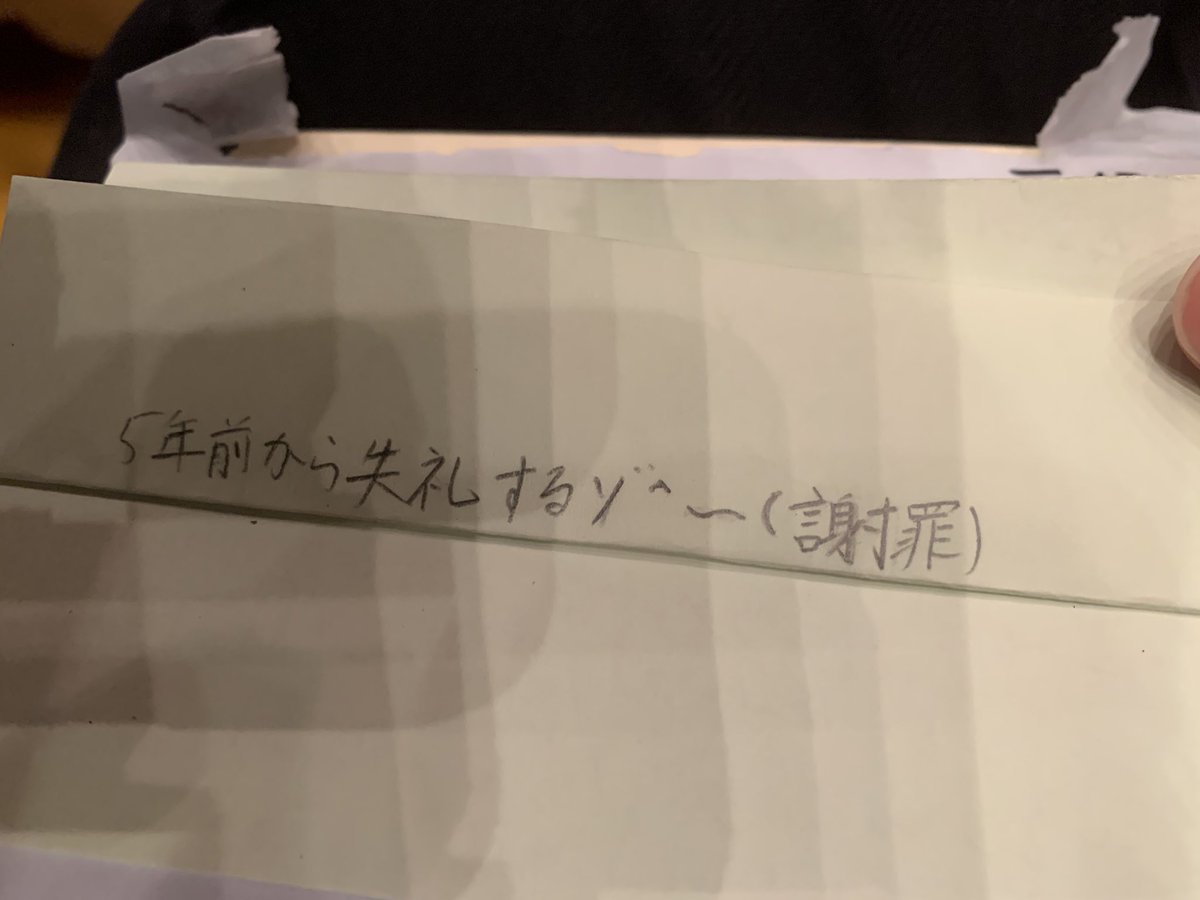 5年前から失礼するゾ^~(謝罪)